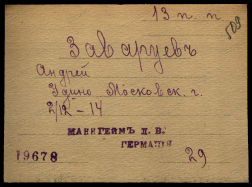 13 п. п
509
Заваруевъ
Андрей
Здино Московск. г.
2/12 - 14
МАНГЕЙМЪ Л. В.
ГЕРМАНІЯ
19678
29